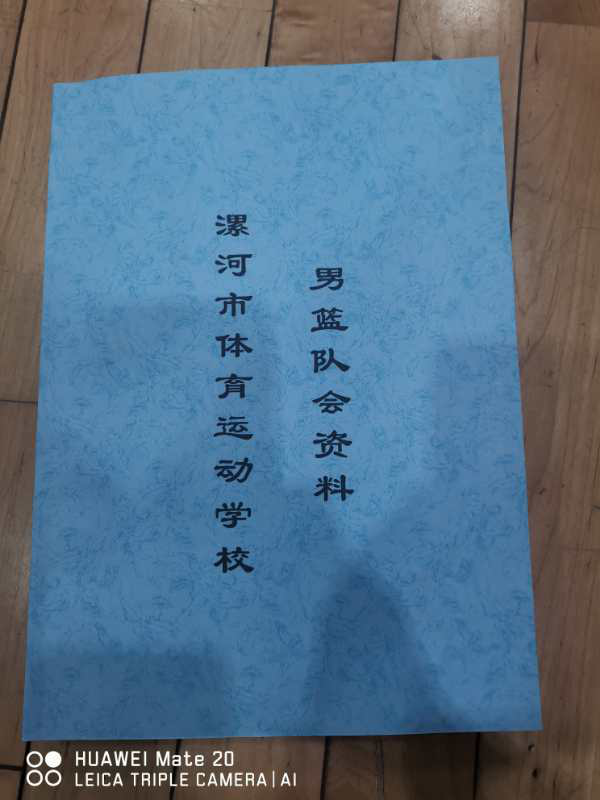 漯河市体育运动学校
男蓝队会资料
HUAWEI Mate 20
LEICA TRIPLE CAMERA | AI